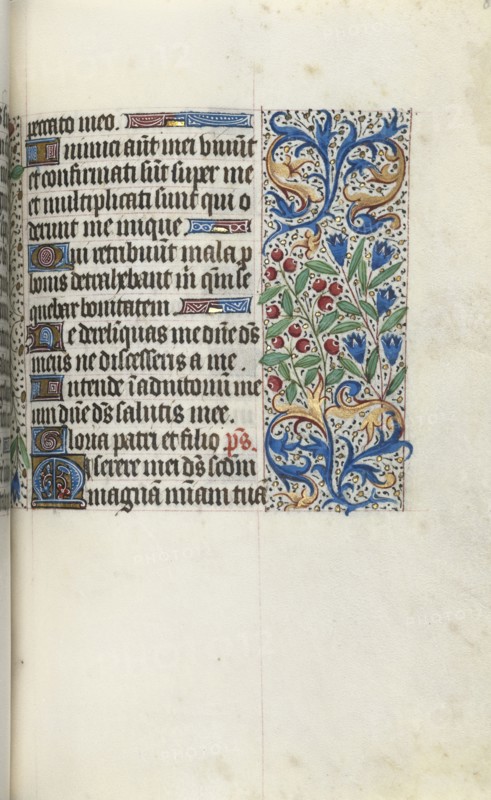 peccato meo.
Inimici aūt mei viuūt
et confirmati sūt super me
et multiplicati sunt qui o
derunt me inique
Qui retribuūt mala p
bonis detrahebant m̄ qm̄ se
quebar bonitatem
Ne derelīquas me dn̄e ds̄
meus ne discesseris a me.
Intende ī adiutoriū me
um dn̄e ds̄ salutis mee.
Gloria patri et filio p̄s.
Miserere mei ds̄ scdm̄
magnā miam̄ tuā